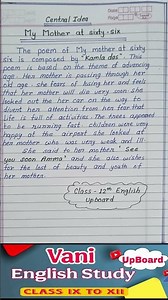 Central Idea
My Mother at sixty-six
The poem of My mother at sixty
six is composed by "Kamla das". This
poem is based on the theme of advancing
age. Her mother is passing through her
old age. She fears of losing her and feels
that her mother will die very soon. She
looked out the her car on the way to
divert her attention from her fear. that
life is full of activities. The trees appeared
to be running fast children were very
happy at the airport she looked at
her mother who was very weak and ill
she said to her mother "See
you soon Amma" and she also wishes
for the lost of beauty and youth of
her mother.
Class - 12th English
Upboard
Vani
UpBoard
English Study
CLASS IX TO XII